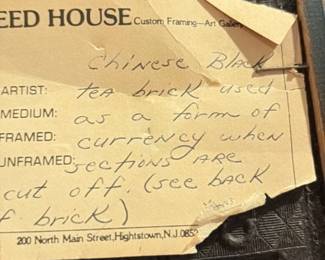 EED HOUSE Custom Framing—Art Gallery
Chinese Black
ARTIST: tea brick used
MEDIUM: as a form of
FRAMED: currency when
UNFRAMED: sections are
cut off. (see back
of brick)
200 North Main Street, Hightstown, N.J. 0852